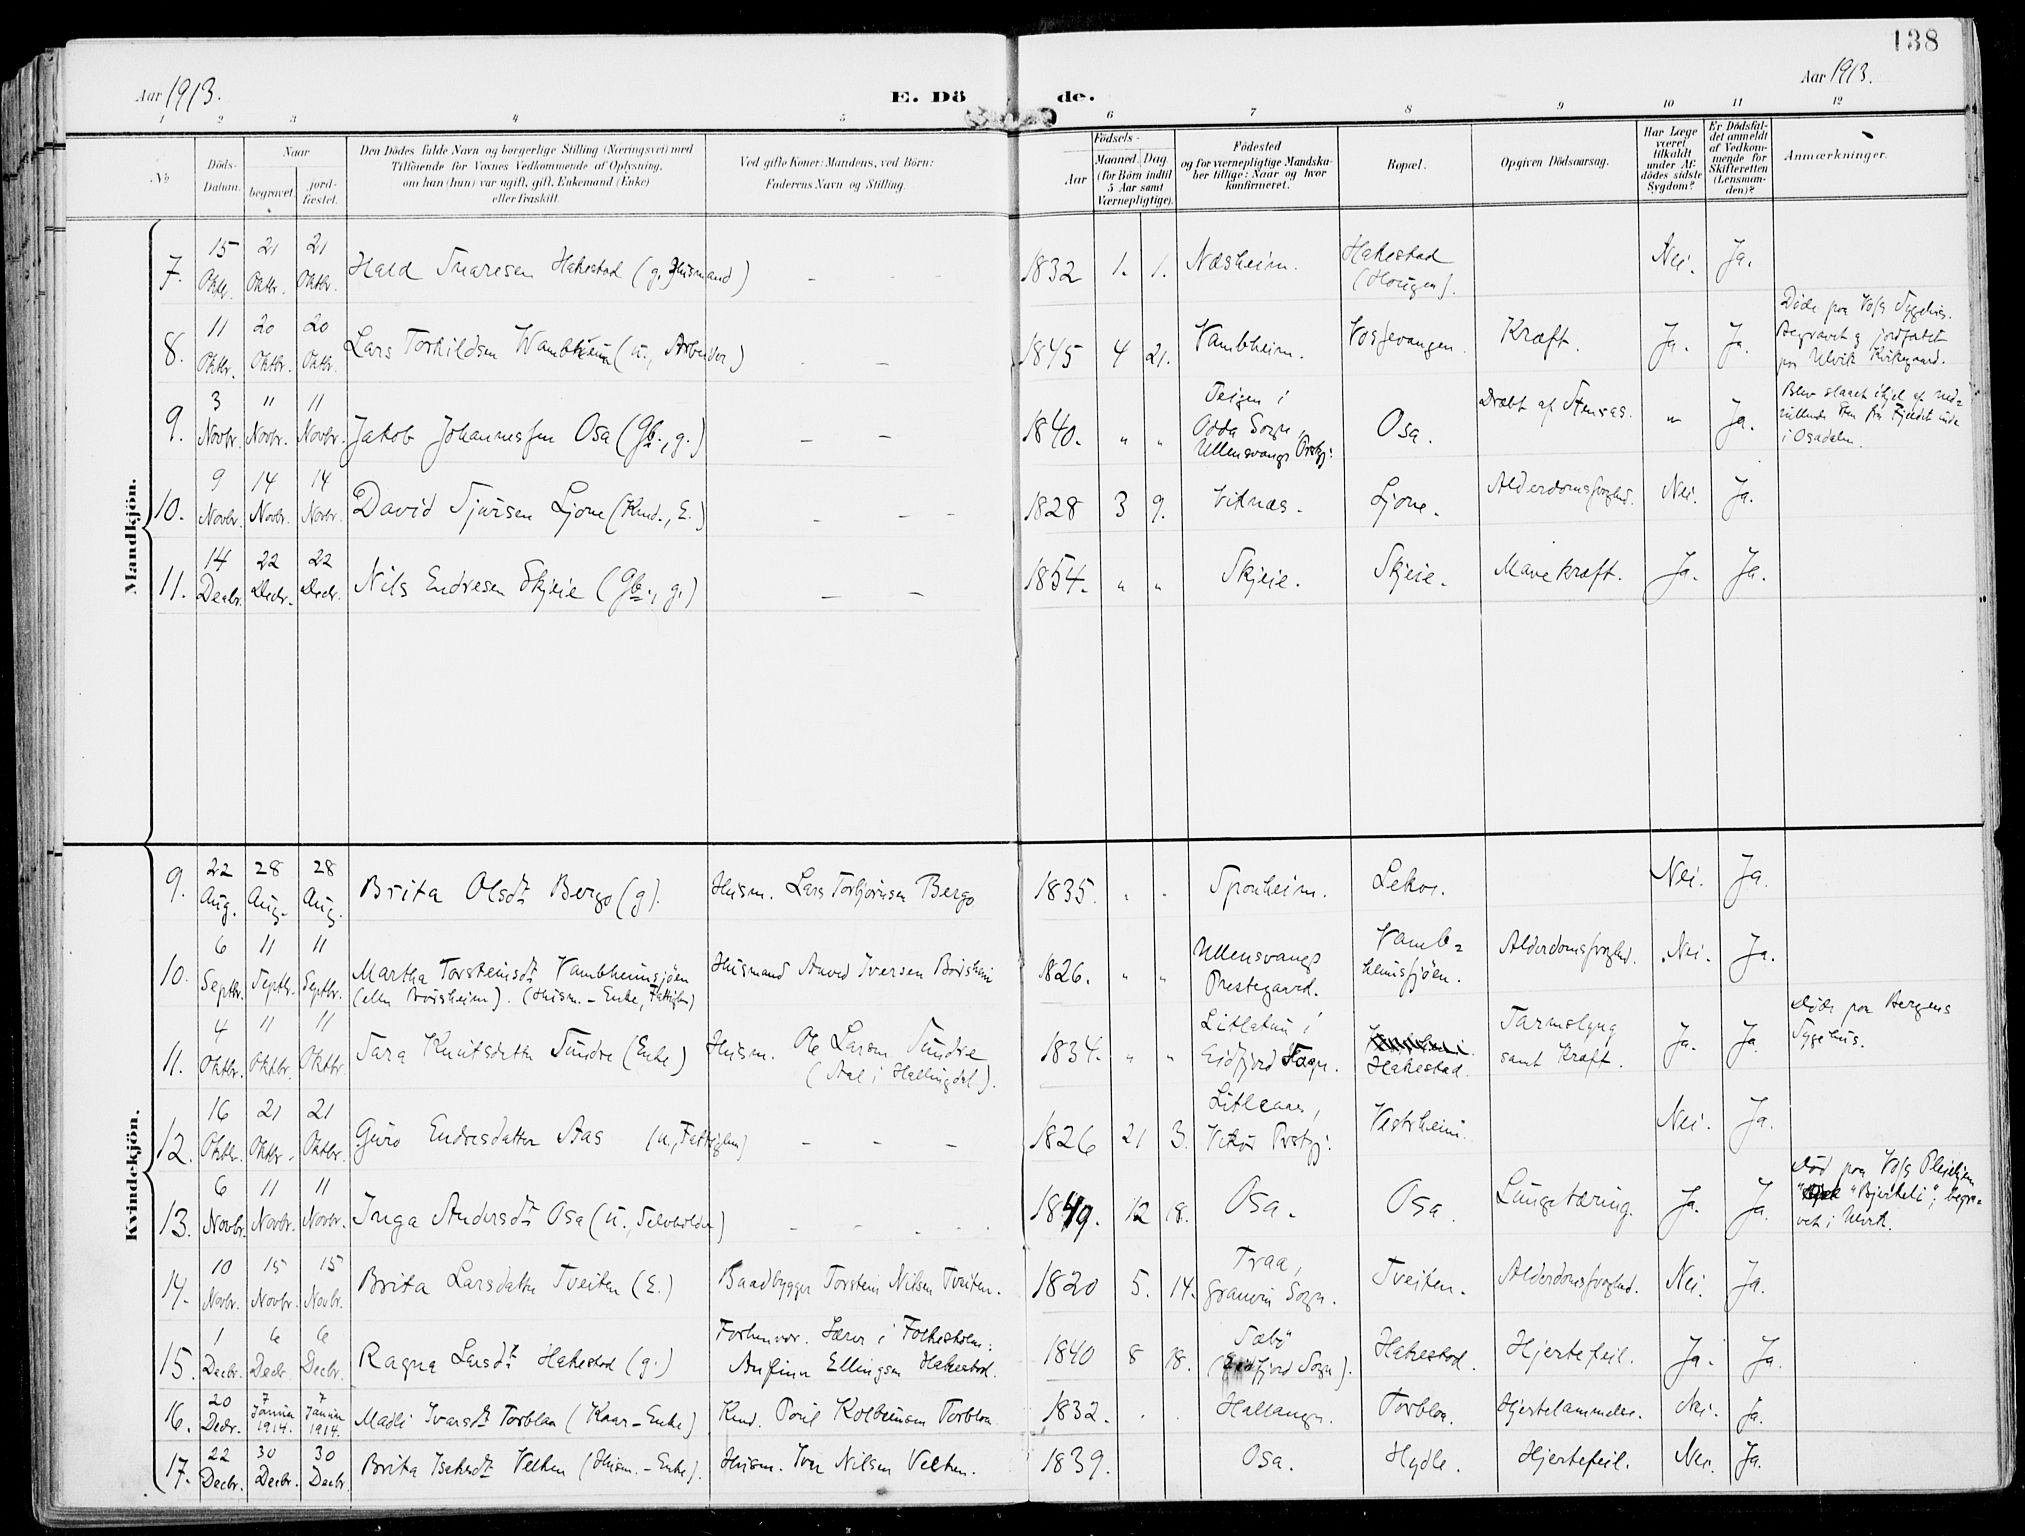 138
Aar 1913.
E. Dö de.
Aar 1913.
1 2 3 4 5 6 7 8 9 10 11 12
№
Döds-
Datum.
Naar
begravet
jord-
fæstet.
Den Dödes fulde Navn og borgerlige Stilling (Næringsvei) med
Tilföiende for Voxnes Vedkommende af Oplysning,
om han (hun) var ugift, gift, Enkemand (Enke)
eller fraskilt.
Ved gifte Koner: Mandens, ved Börn:
Faderens Navn og Stilling.
Födsels-
Aar
Maaned Dag
(for Börn indtil
5 Aar samt
Værnepligtige).
Födested
og for værnepligtige Mandska-
ber tillige: Naar og hvor
konfirmeret.
Bopæl.
Opgiven Dödsaarsag.
Har Læge
været
tilkaldt
under Af-
dödes sidste
Sygdom?
Er Dödsfal-
det anmeldt
af Vedkom-
mende for
Skifteretten
(Lensman-
den)?
Anmærkninger.
Mandkjön.
7. 15 Oktbr. 21 Oktbr. 21 Oktbr. Hakestad (g. Husmand) – 1832 1. 1. Næsheim. Hakestad (Hougen). Nei. Ja.
8. 11 Oktbr. 20 Oktbr. 20 Oktbr. Lars Torkildsen Wambheim (u., Arbeider) – – 1845 4 21. Vambheim. Vossevangen. Kræft. Ja. Ja. Døde paa Voss Sygehus.
Begravet og jordfæstet
paa Ulvik Kirkegaard.
9. 3 Novbr. 11 Novbr. 11 Novbr. Jakob Johannessen Osa (Gb., g.) – – 1840. " " Teigen i
Odda Sogn,
Ullensvangs Prstgj: Osa. Dræbt af Stenras. " Ja. Blev slaaet ihjel af ned-
rullende Sten fra Fjeldet inde
i Osadalen.
10. 9 Novbr. 14 Novbr. 14 Novbr. David Sjursen Ljone (Kmd., E.) – – – 1828 3 9. Viknæs. Ljone. Alderdomssvaghed. Nei. Ja.
11. 14 Decbr. 22 Decbr. 22 Decbr. Nils Endresen Skjeie (Gb., g.) – – 1854. " " Skjeie. Skjeie. Mavekræft. Ja. Ja.
Kvindekjön.
9. 22 Aug. 28 Aug. 28 Aug. Brita Olsdt Bergo (g). Husm. Lars Torbjørnsen Bergo 1835. " " Sponheim. Lekve. Nei. Ja.
10. 6 Septbr. 11 Septbr. 11 Septbr. Martha Torsteinsdt Vambheimsjøen
(ell. Boisheim). (Husm.-Enke, Fattiglem) Husmand Amund Iversen Boisheim 1826. " " Ullensvangs
Prestegaard. Vamb-
heimsjøen. Alderdomssvaghed. Nei. Ja.
11. 4 Oktbr. 11 Oktbr. 11 Oktbr. Sara Knutsdatter Sundre (Enke) Husm. Ole Larsen Sundre
(Aal i Hallingdal). 1834. " " Litlatun i
Eidfjord Sogn. Hakestad. Tarmslyng
samt Kræft. Ja. Ja. Døde paa Bergens
Sygehus.
12. 16 Oktbr. 21 Oktbr. 21 Oktbr. Guro Endresdatter Aas (u., Fattiglem) – – – 1826 21 3. Litleaas,
Vikør Prstgj: Vestrheim. Nei. Ja.
13. 6 Novbr. 11 Novbr. 11 Novbr. Inga Andersdt Osa (u., Selvholder) – – 1849. 12 18. Osa. Osa. Lungetæring. Ja. Ja. Død paa Voss Pleiehjem
"Bjerkeli", begra-
vet i Ulvik.
14. 10 Novbr. 15 Novbr. 15 Novbr. Brita Larsdatter Tveiten (E.) Baadbygger Torstein Nilsen Tveiten. 1820 5. 14. Traa,
Granvin Sogn. Tveiten. Alderdomssvaghed. Nei. Ja.
15. 1 Decbr. 6 Decbr. 6 Decbr. Ragna Larsdt Hakestad (g.) Forhenvær. Lærer i Folkeskolen:
Anfinn Ellingsen Hakestad. 1840 8 18. Sæbø
(Eidfjord Sogn). Hakestad. Hjertefeil. Ja. Ja.
16. 20 Decbr. 7 Januar 1914. 7 Januar 1914. Madli Ivarsdt Torblaa (Kaar-Enke) Kmd. Poul Kolbeinsen Torbloa 1832. " " Hallanger. Torbloa. Hjertelammelse. Nei. Ja.
17. 22 Decbr. 30 Decbr. 30 Decbr. Brita Isaksdt Velken (Husm.-Enke). Husm. Iver Nilsen Velken. 1839. Osa. Hydle. Hjertefeil. Nei. Ja.